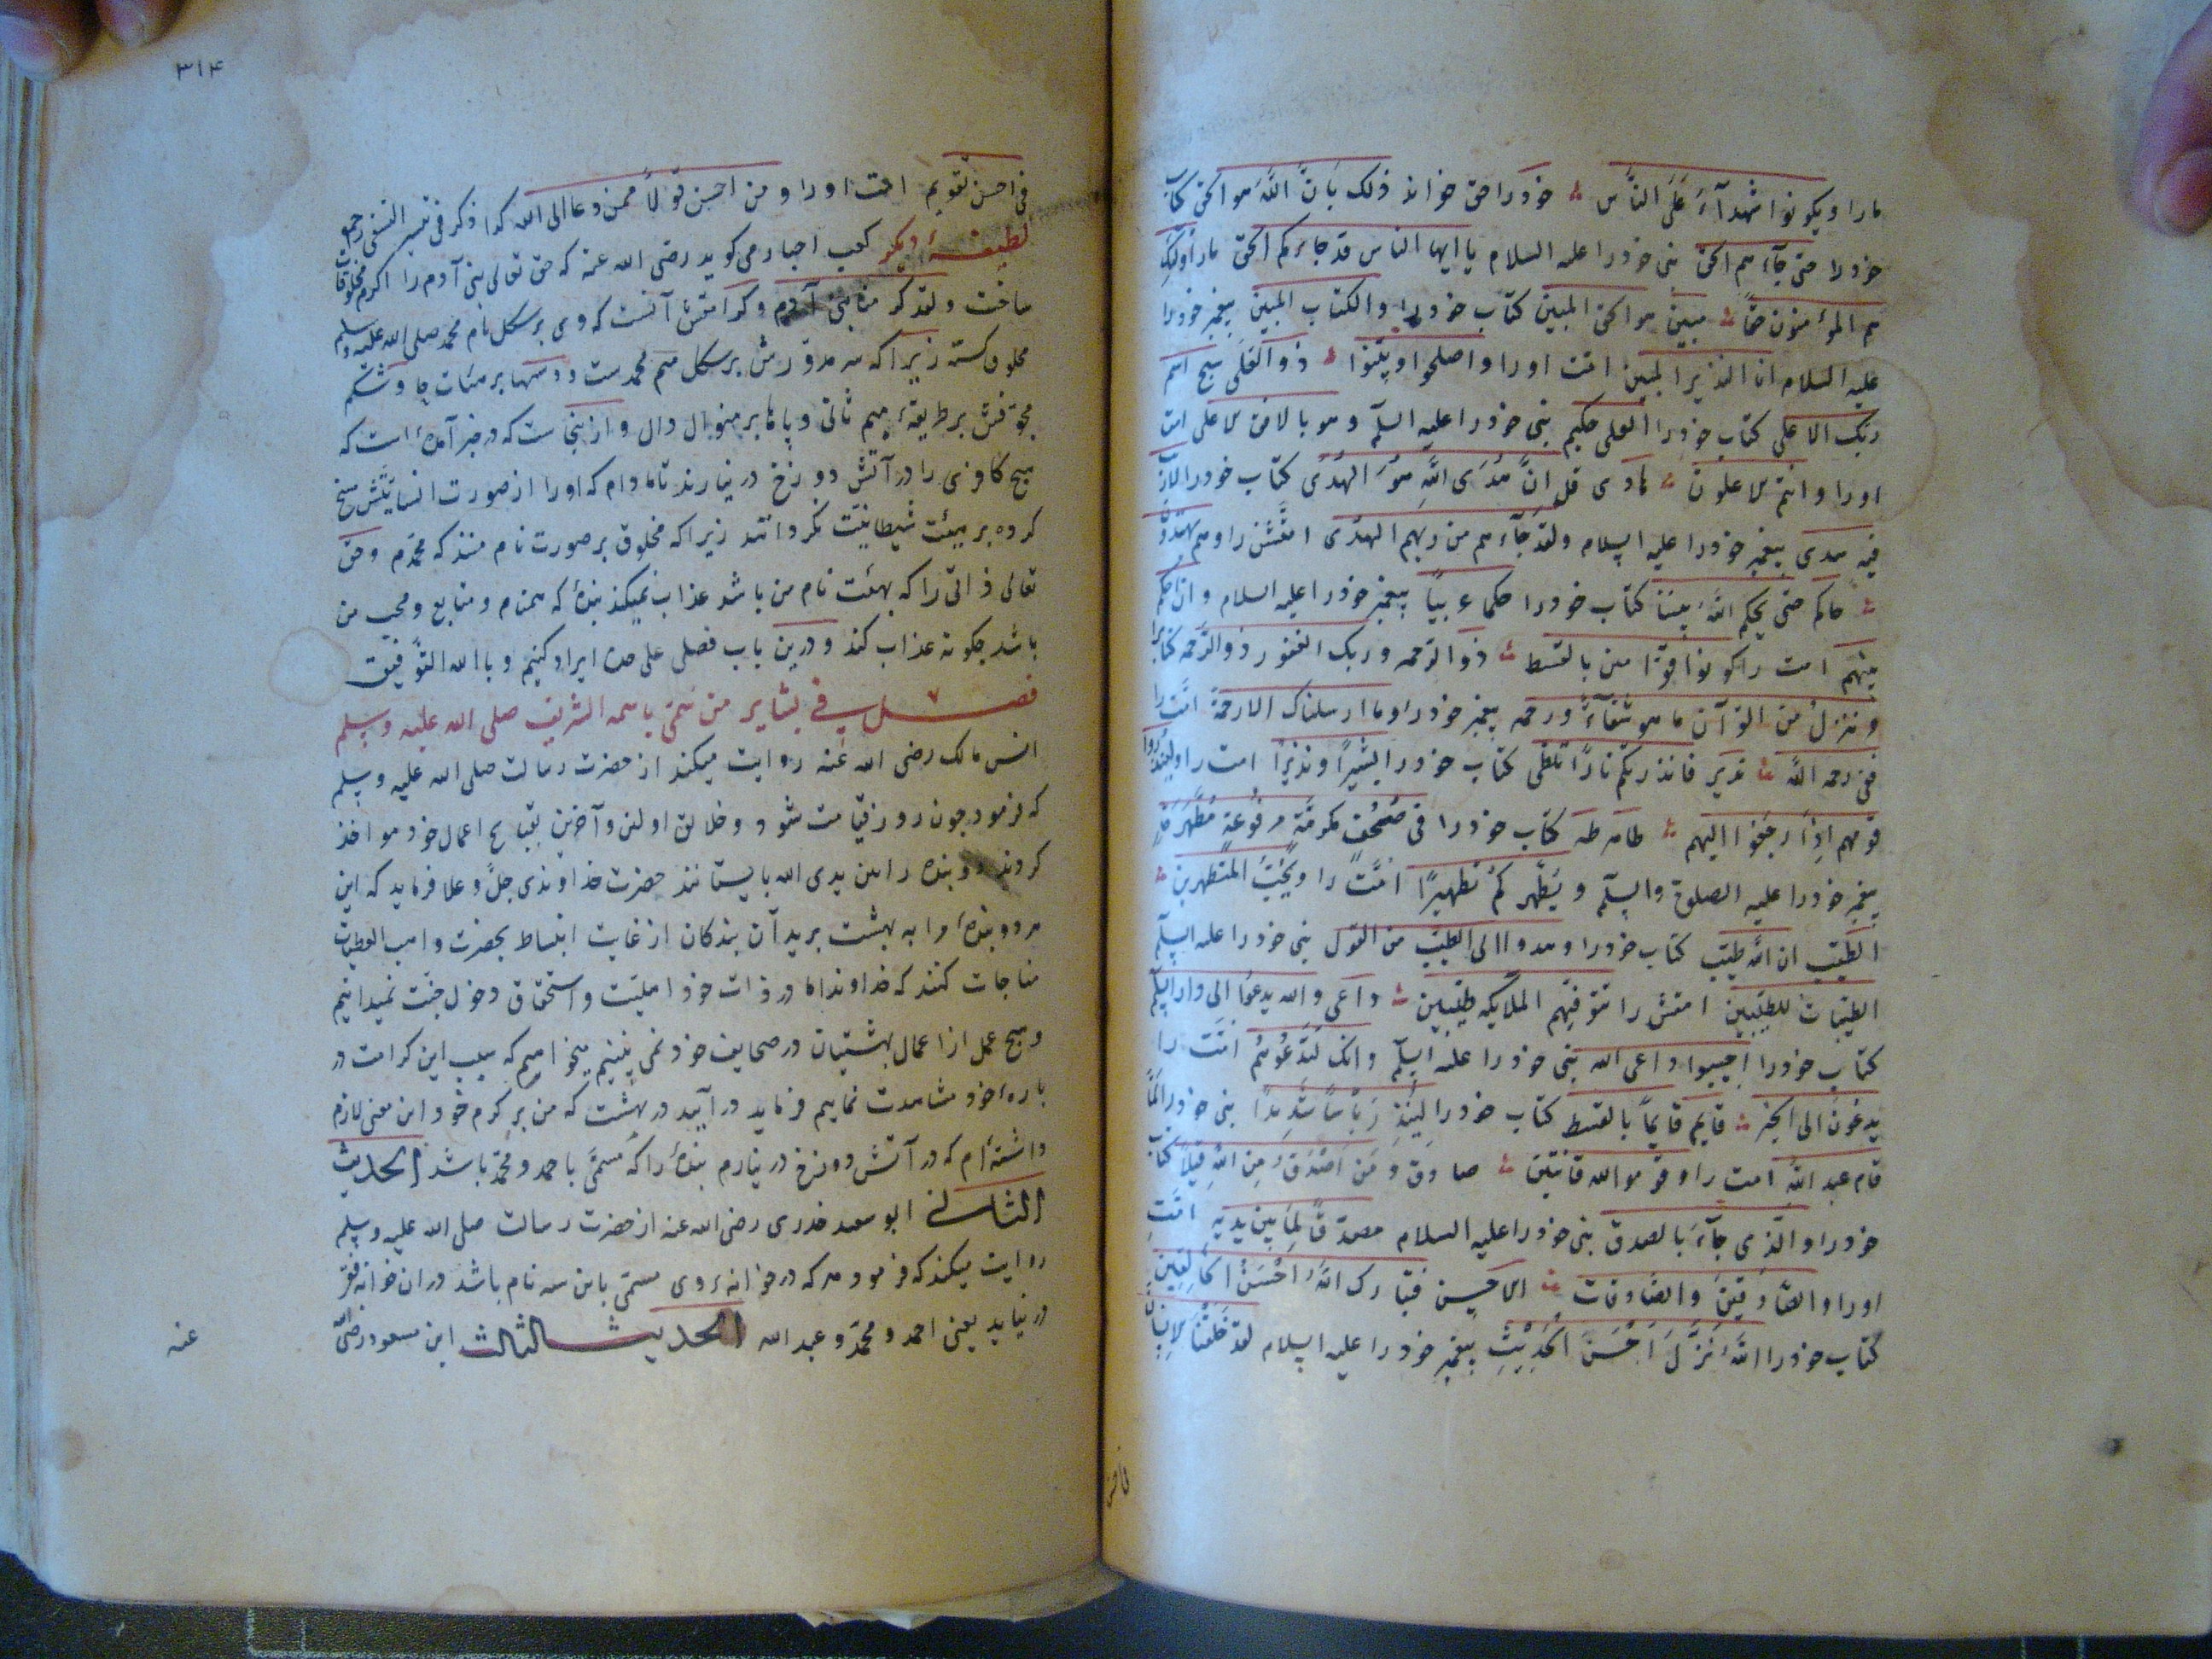 مارا ویکونوا شهدآء عَلَی النَّاس ؞ خودرا حق خواند ذلک بَانَّ اللَّهَ هو الحق کتاب
خودرا حتی جآءهم الحق نبی خودرا علیه السلام یا ایها الناس قد جاءکم الحق مارا اولئک
هم المؤمنون حقًّا ؞ مبین هو الحق المبین کتاب خودرا والکتاب المبین پیغمبر خودرا
علیه السلام انا النذیر المبین امّت اورا واصلحوا وبیّنوا ؞ ذو العُلَی سبح اسم
ربّک الاعلی کتاب خودرا لعلی حکیم نبی خودرا علیه السلم وهو بالافق الاعلی امّت
اورا وانتم الاعلون ؞ هادی قل انَّ هُدَی اللَّهِ هُوَ الهُدَی کتاب خودرا لاریب
فیه هدی پیغمبر خودرا علیه السلام ولقد جآءهم من ربهم الهُدَی امّتش را وهم مهتدون
؞ حاکم حتی یحکم اللَّهُ بیننا کتاب خودرا حکما عربیًّا پیغمبر خودرا علیه السلام وان احکم
بینهم امت را کونوا قوّامین بالقسط ؞ ذو الرّحمه وربک الغفور ذو الرَّحمه کتاب را
وننزلُ من القرآن ما هو شفآءٌ ورحمه پیغمبر خودرا وما ارسلناک الا رحمة امّت را
ففی رحمه اللَّه ؞ نذیر فانذرتکم نارًا تلظی کتاب خودرا بشیرًا ونذیرًا امت را ولینذروا
قومهم اِذَا رجعُوا الیهم ؞ طاهر طه کتاب خودرا فی صُحُفٍ مکرمّةٍ مرفوعةٍ مُطَهَّرَةٍ
پیغمبر خودرا علیه الصلوة والسلم ویُطَهّرکُم تطهیرًا امّت را ویُحِبُّ المتطهرین ؞
الطیّب ان اللَّه طیّب کتاب خودرا وهدوا الی الطیّب من القول نبی خودرا علیه السلم
الطیّبات للطیّبین امتش را تتوفیّهم الملایکه طیّبین ؞ داعی والله یدعُوا الی دار السلم
کتاب خودرا اجیبوا داعی الله نبی خودرا علیه السلم وانک لَتَدعُوهُم امّت را
یدعُونَ الی الخیر ؞ قایم قایماً بالقسط کتاب خودرا لِیُنذِرَ بَأْسًا شدیدًا نبی خودرا لَمَّا
قام عبد اللَّه امت را وقوموا لله قانتین ؞ صادق وَمَن اَصْدَقُ مِنَ اللَّهِ قیلاً کتاب
خودرا والّذی جآءَ بالصدق نبی خودرا علیه السلام مصدّقًا لِمَا بین یدیه امّت
اورا والصَّادقینَ والصّادقات ؞ الاحسن فتبارک اللَّهُ اَحْسَنُ الخَالِقِین
کتاب خودرا اللَّهُ نَزَّلَ اَحْسَنَ الحَدِیْثِ پیغمبر خودرا علیه السلام لقد خَلَقْنَا الاِنْسَانَ
۳۱۴
فی احسن تقویم امت اورا ومن احسن قولاً ممن دعا الی الله کذا ذکر فی تفسیر النسفی رحمه
لطیفهٔ دیگر کعب احبار می گوید رضی الله عنه که حق تعالی بنی آدم را اکرم مخلوقات
ساخت ولقد کرمنا بنی آدم وکرامتش آنست که وی بر شکل نام محمد صلی الله علیه وسلم
مخلوق گشته زیراکه سر مدوّرش بر شکل میم محمدست ودستها بر هیئات حا وشکم
مجوّفش بر طریقهٔ میم ثانی وپاها بر منوال دال وازینجاست که در خبر آمده است که
هیچ کافری را در آتش دوزخ در نیارند تا مادام که اورا از صورت انسانیّتش مسخ
کرده بر هیئت شیطانیّت نگردانند زیراکه مخلوق بر صورت نام منند که محمّدم وحق
تعالی ذاتی را که بهیئت نام من باشد عذاب نمیکند بندهٔ که همنام ومتابع ومحب من
باشد چکونه عذاب کند ودرین باب فصلی علی حده ایراد کنیم وبالله التَّوفیق
فصل فی بشایر من سُمّی باسمه الشریف صلی الله علیه وسلم
انس مالک رضی الله عنه روایت میکند از حضرت رسالت صلی الله علیه وسلم
که فرمود چون روز قیامت شود وخلائق اولین وآخرین بقبایح اعمال خود مواخذ
کردند دو بنده را بین یدی الله بایستانند حضرت خداوندی جلَّ وعلا فرماید که این
هر دو بندهٔ مرا به بهشت برید آن بندکان از غایت انبساط بحضرت واهب العطیات
مناجات کنند که خداوندا ما در ذات خود اهلیّت واستحقاق دخول جنّت نمیدانیم
وهیچ عمل از اعمال بهشتیان در صحایف خود نمی بینیم میخواهیم که سبب این کرامت در
بارهٔ خود مشاهدت نماییم فرماید در آیید در بهشت که من بر کرم خود این معنی لازم
داشته‌ام که در آتش دوزخ در نیارم بندهٔ را که مسمّی باحمد ومحمّد باشد الحدیث
الثانی ابو سعید خدری رضی الله عنه از حضرت رسالت صلی الله علیه وسلم
روایت میکند که فرمود هر که در خوانه وی مسمّی باین سه نام باشد در ان خوانه فقر
در نیاید یعنی احمد ومحمّد وعبد الله الحدیث الثالث ابن مسعود رضی الله
عنه